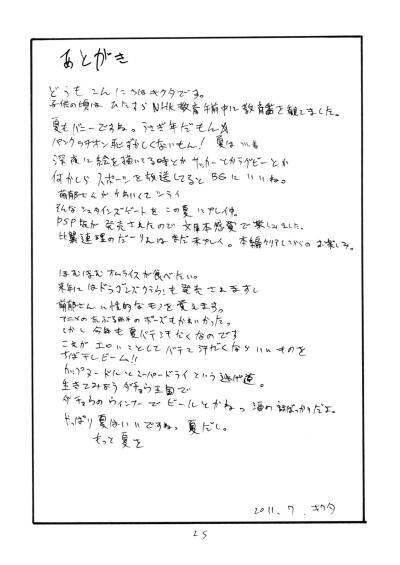 あとがき
どうも こんにちは キクタです。
子供の頃は ひたすら NHK教育 午前中に 教育番組を観てました。
夏もバニーですね。うさぎ年だもん
恥ずかしくないもん！ 夏は
深夜に絵を描いてる時とか サッカーとかラグビーとか
何かしら スポーツを放送してると BGにいいね。
萌郁さんが かわいくてツライ
そんなシュタインズゲートをこの夏にプレイ中。
PSP版が発売されたので 文庫本感覚で楽しみました。
比翼連理のだーりんは まだ未プレイ。本編クリアしてからのお楽しみ。
ほむほむ オムライスが食べたい。
来年にはドラゴンズクラウンも発売されますし
萌郁さんに性的なモノを覚えます。
アニメの 荒ぶる のポーズもかわいかった。
しかし今年も 夏バテ
これが エロいことしてバテて汗だくなら いいものを
ちばテレビーム!!
カップヌードルとスーパードライという
生きてみよう ダチョウ王国で
ダチョウのウインナーで ビールとかねっ 海の話ばっかりだよ。
やっぱり夏はいいですね。夏だし。
もっと夏を
2011. 7. キクタ
25